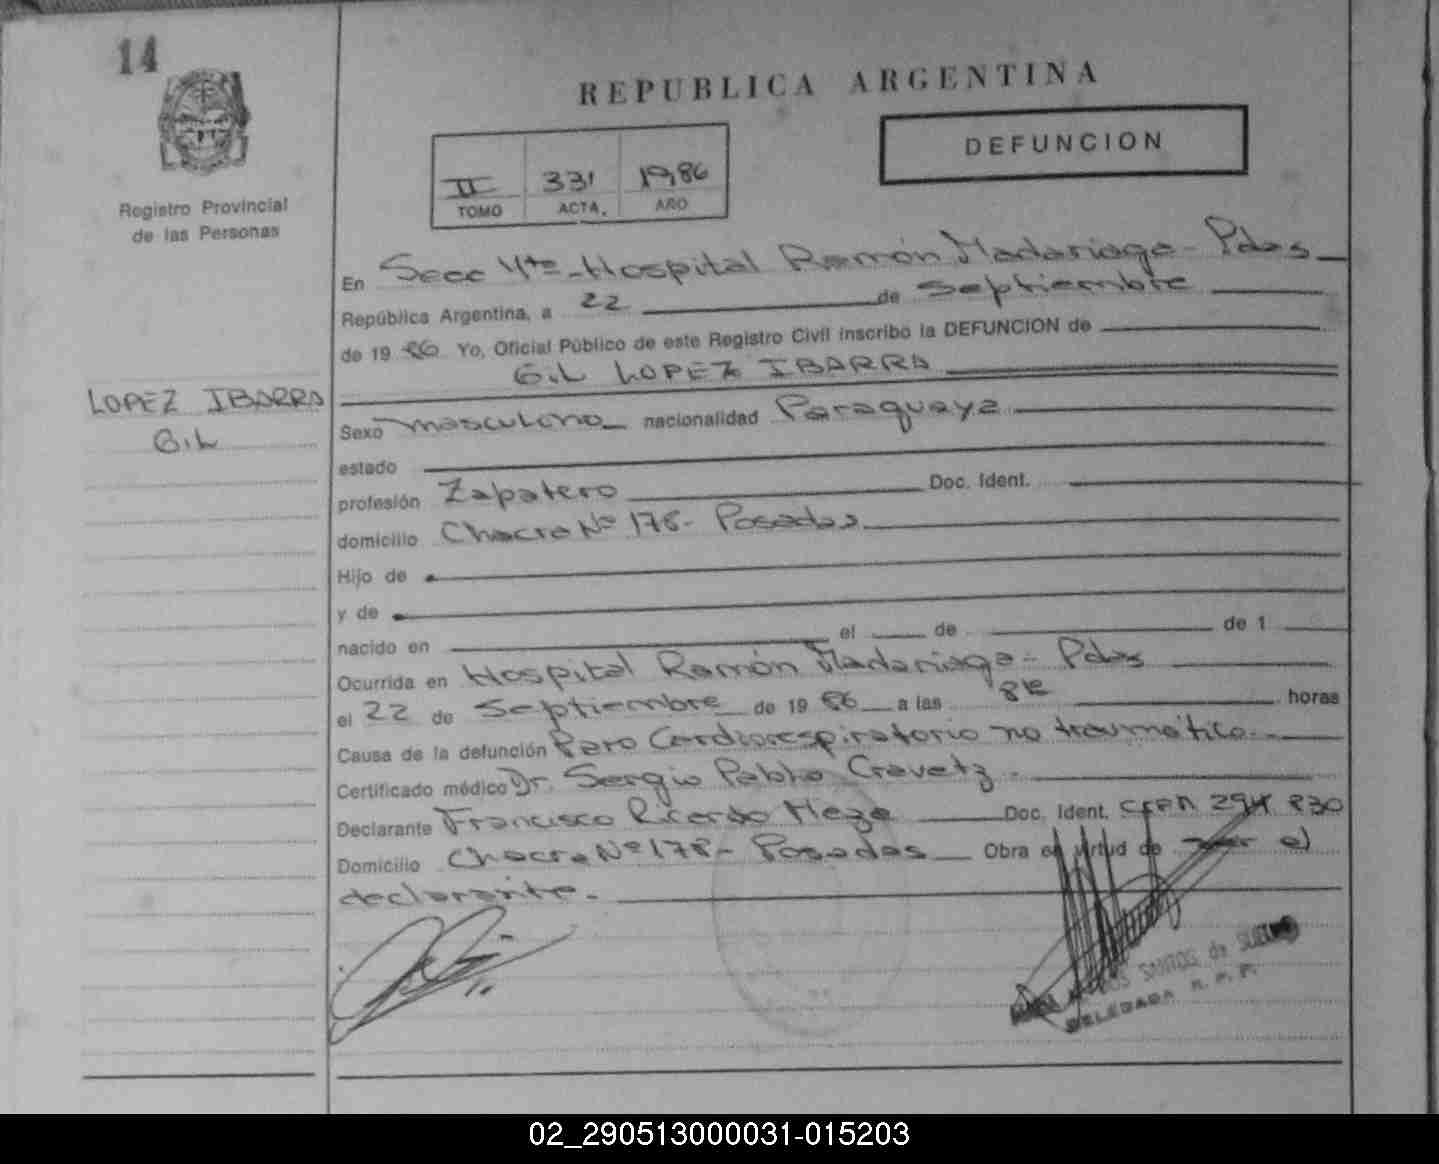 14
REPUBLICA ARGENTINA
DEFUNCION
II 331 1986
TOMO ACTA. AÑO
Registro Provincial
de las Personas
En Secc 4ta - Hospital Ramón Madariaga - Pdas
República Argentina, a 22 de Septiembre
de 1986 Yo, Oficial Público de este Registro Civil inscribo la DEFUNCION de
GIL LOPEZ IBARRA
LOPEZ IBARRA
GIL
Sexo masculino nacionalidad Paraguaya
estado
profesión Zapatero Doc. Ident.
domicilio Chacra Nº 178 - Posadas
Hijo de
y de
nacido en el de de 1
Ocurrida en Hospital Ramón Madariaga - Pdas
el 22 de Septiembre de 1986 a las horas
Causa de la defunción Paro Cardiorespiratorio no traumático
Certificado médico Dr. Sergio Pablo Cravetz
Declarante Francisco Ricardo Meza Doc. Ident. 830
Domicilio Chacra Nº 178 - Posadas Obra en virtud de ser el
declarante.
SANTOS de
DELEGADA R. P. P.
02_290513000031-015203